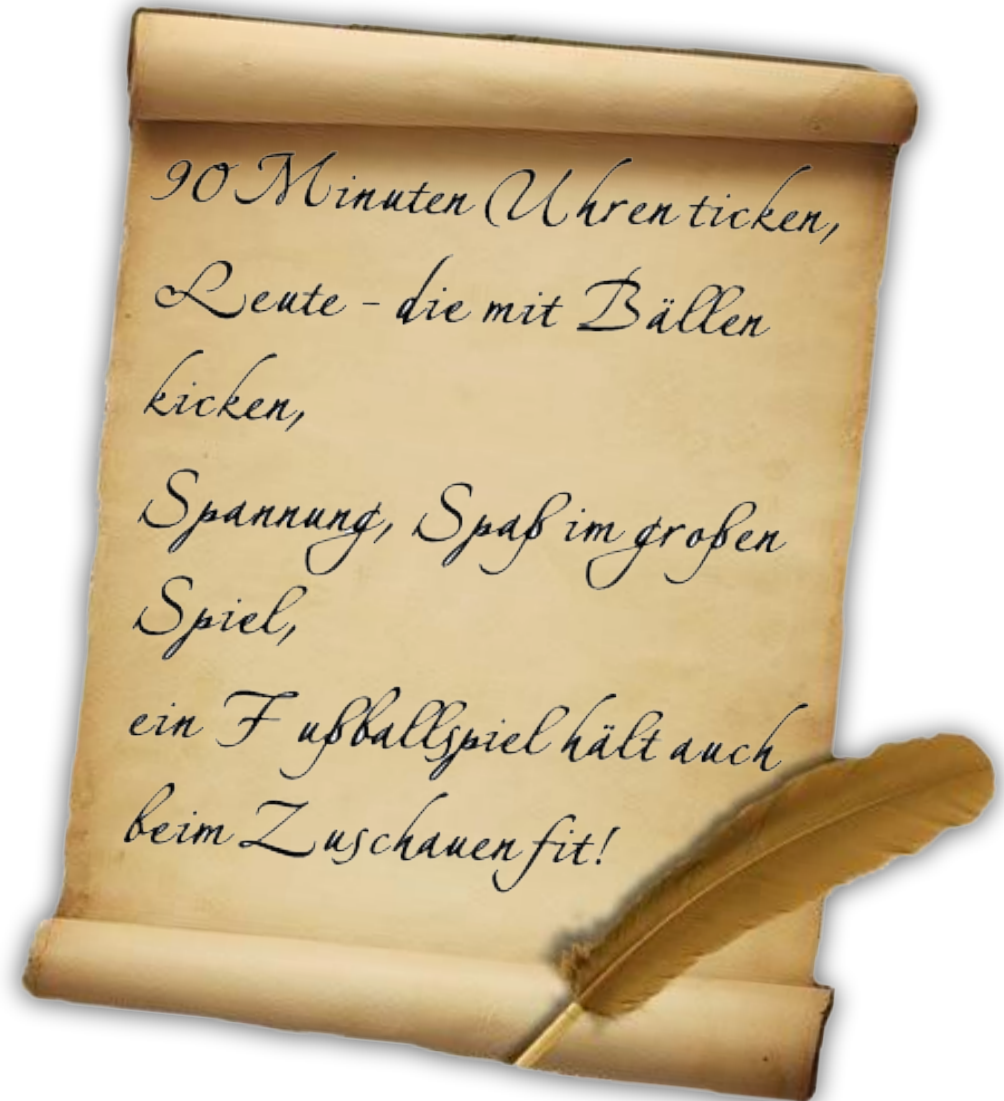 90 Minuten Uhren ticken,
Leute - die mit Bällen
kicken,
Spannung, Spaß im großen
Spiel,
ein Fußballspiel hält auch
beim Zuschauen fit!